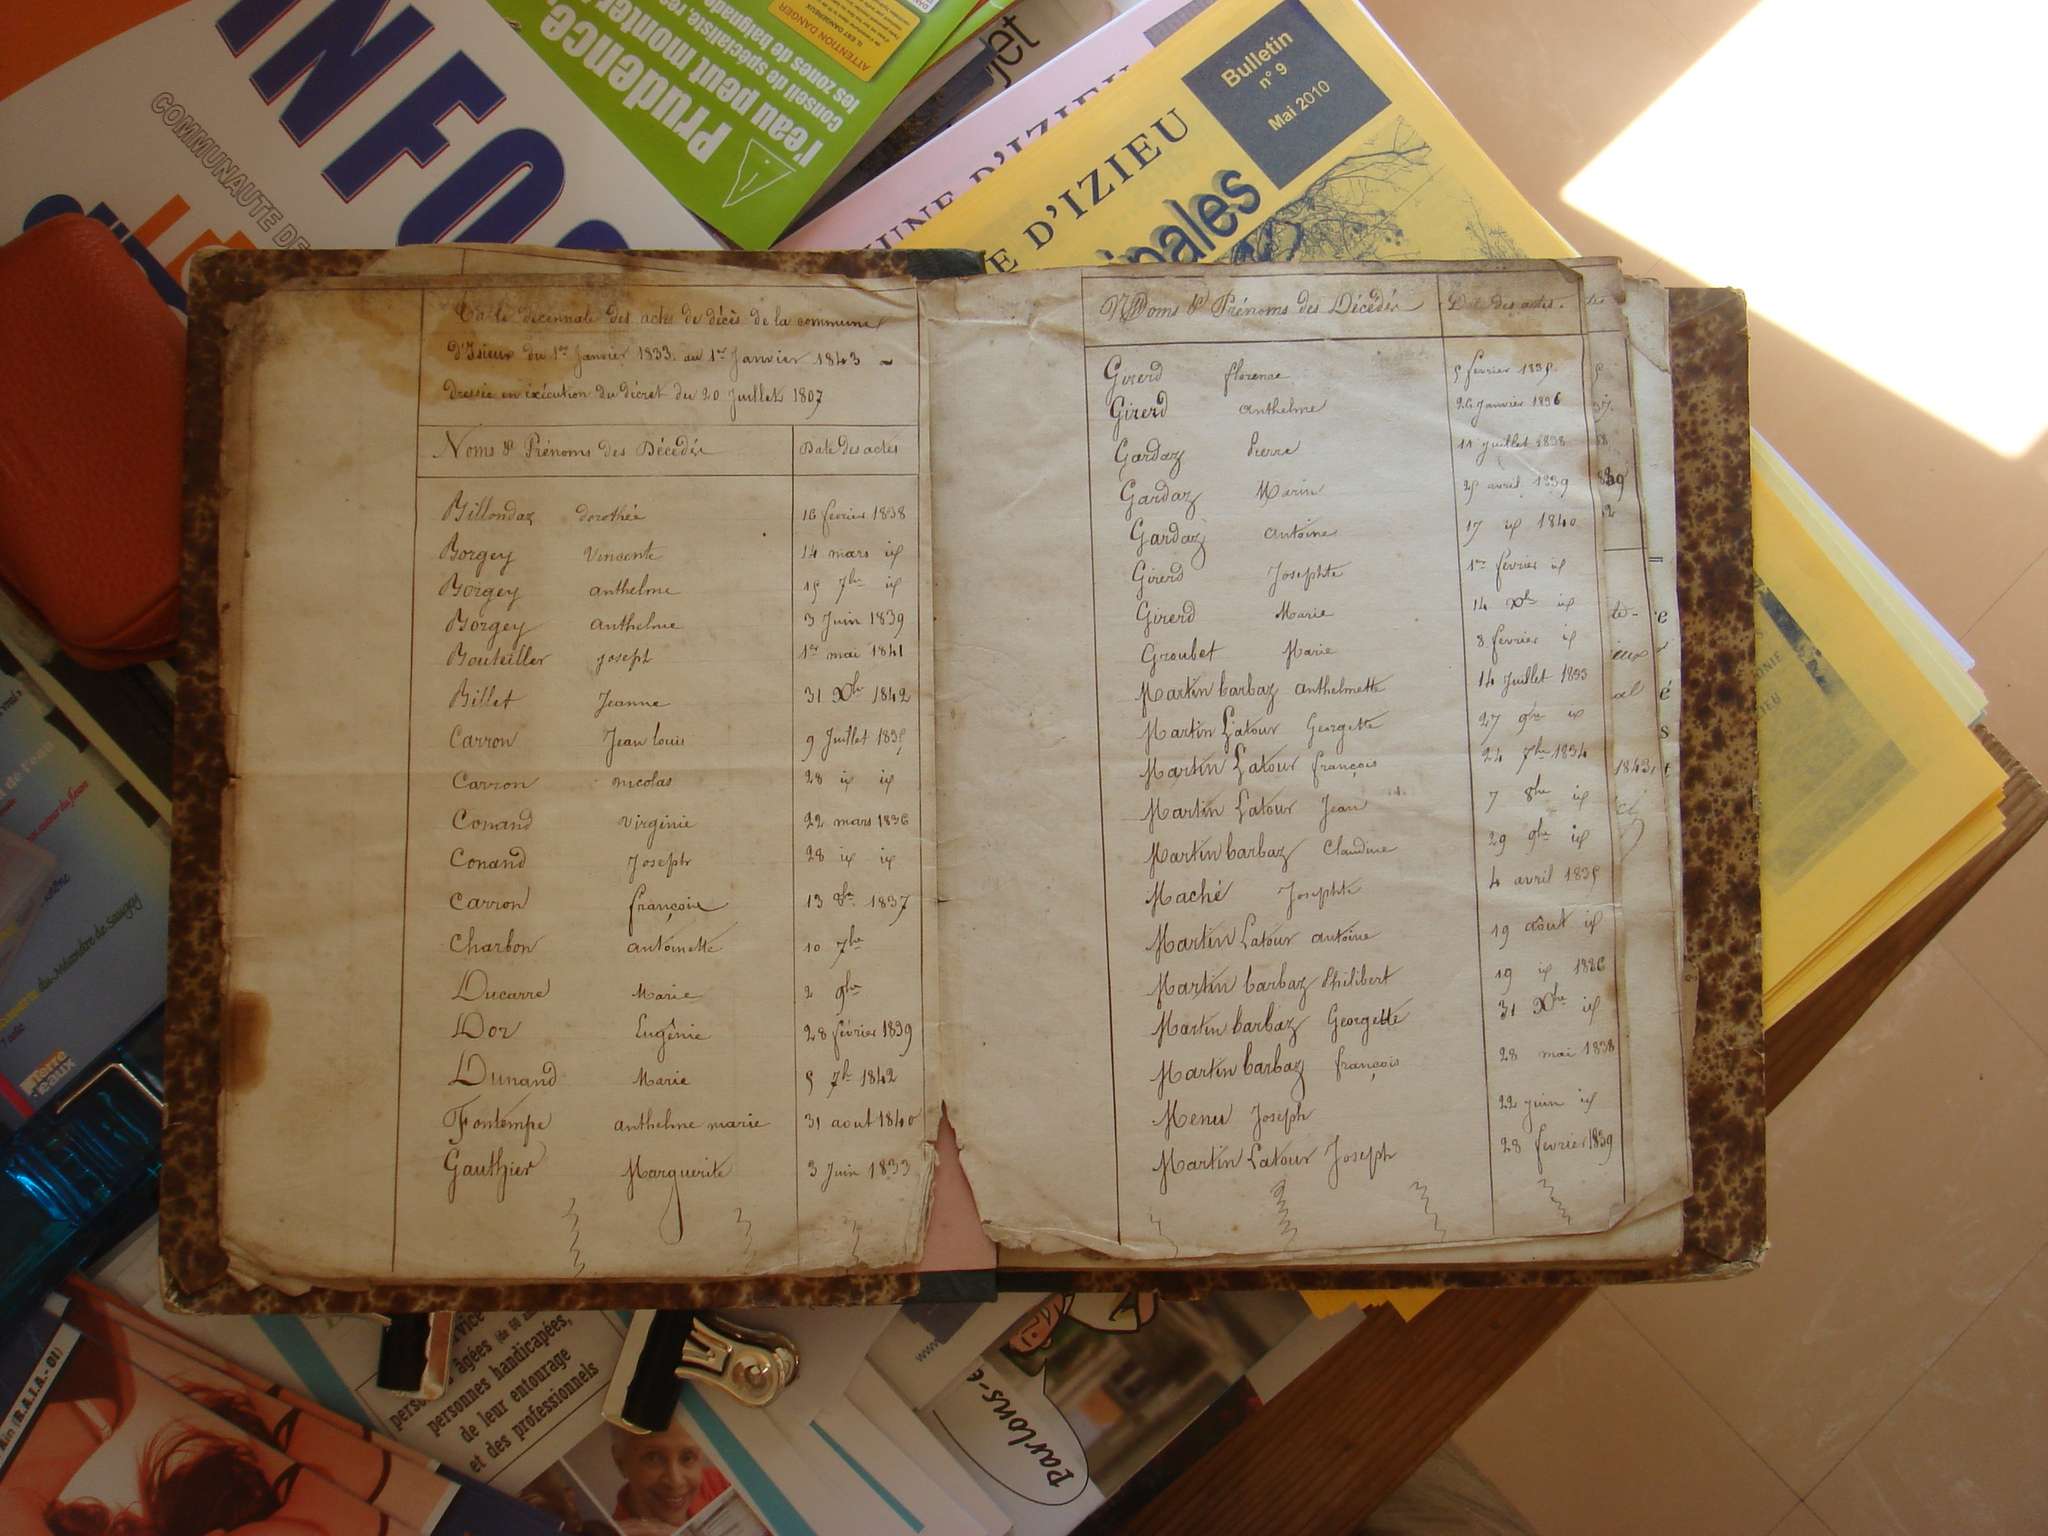 INFOS
COMMUNAUTE DE
Prudence,
l'eau peut monter
conseil de spécialiste,
les zones de baignade
ATTENTION DANGER
jet
UNE D'IZIEU
E D'IZIEU
ipales
Bulletin
n° 9
Mai 2010
Table décennale des actes de décès de la commune
d'Isieux du 1er Janvier 1833 au 1er Janvier 1843 -
dressée en exécution du décret du 20 Juillet 1807
Noms & Prénoms des Décédés Date des actes
Billondaz dorothée 16 fevrier 1838
Borgey vincente 14 mars id
Borgey anthelme 15 7bre id
Borgey anthelme 3 Juin 1839
Bouteiller joseph 1er mai 1841
Billet Jeanne 31 Xbre 1842
Carron Jean louis 9 Juillet 1835
Carron nicolas 28 id id
Conand virginie 22 mars 1836
Conand Joseph 28 id id
Carron françoise 13 8bre 1837
Charbon antoinette 10 7bre
Ducarre Marie 2 9bre
Dor Eugénie 28 février 1839
Dunand Marie 5 7bre 1842
Fontempe anthelme marie 31 aout 1840
Gauthier Marguerite 3 Juin 1833
Noms & Prénoms des Décédés Date des actes.
Girerd florence 5 fevrier 1835
Girerd anthelme 26 Janvier 1836
Gardaz Pierre 11 juillet 1838
Gardaz Marin 25 avril 1839
Gardaz antoine 17 id 1840
Girerd Josephte 1er fevrier id
Girerd Marie 14 Xbre id
Groubet Marie 8 fevrier id
Martin barbaz anthelmette 14 Juillet 1833
Martin Latour Georgette 27 9bre id
Martin Latour françois 24 7bre 1834
Martin Latour Jean 7 8bre id
Martin barbaz Claudine 29 9bre id
Maché Josephte 4 avril 1835
Martin Latour antoine 19 août id
Martin barbaz Philibert 19 id 1836
Martin barbaz Georgette 31 Xbre id
Martin barbaz françois 28 mai 1838
Menu Joseph 22 juin id
Martin Latour Joseph 28 fevrier 1839
1843
Terre
eaux
du Méandre de Saugey
Ain (R.A.I.A.-01)
service
âgées
personnes handicapées,
de leur entourage
et des professionnels
www.
Parlons-e